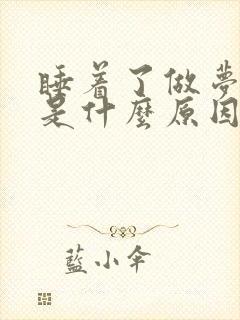 睡着了做夢
是什麼原因
藍小傘